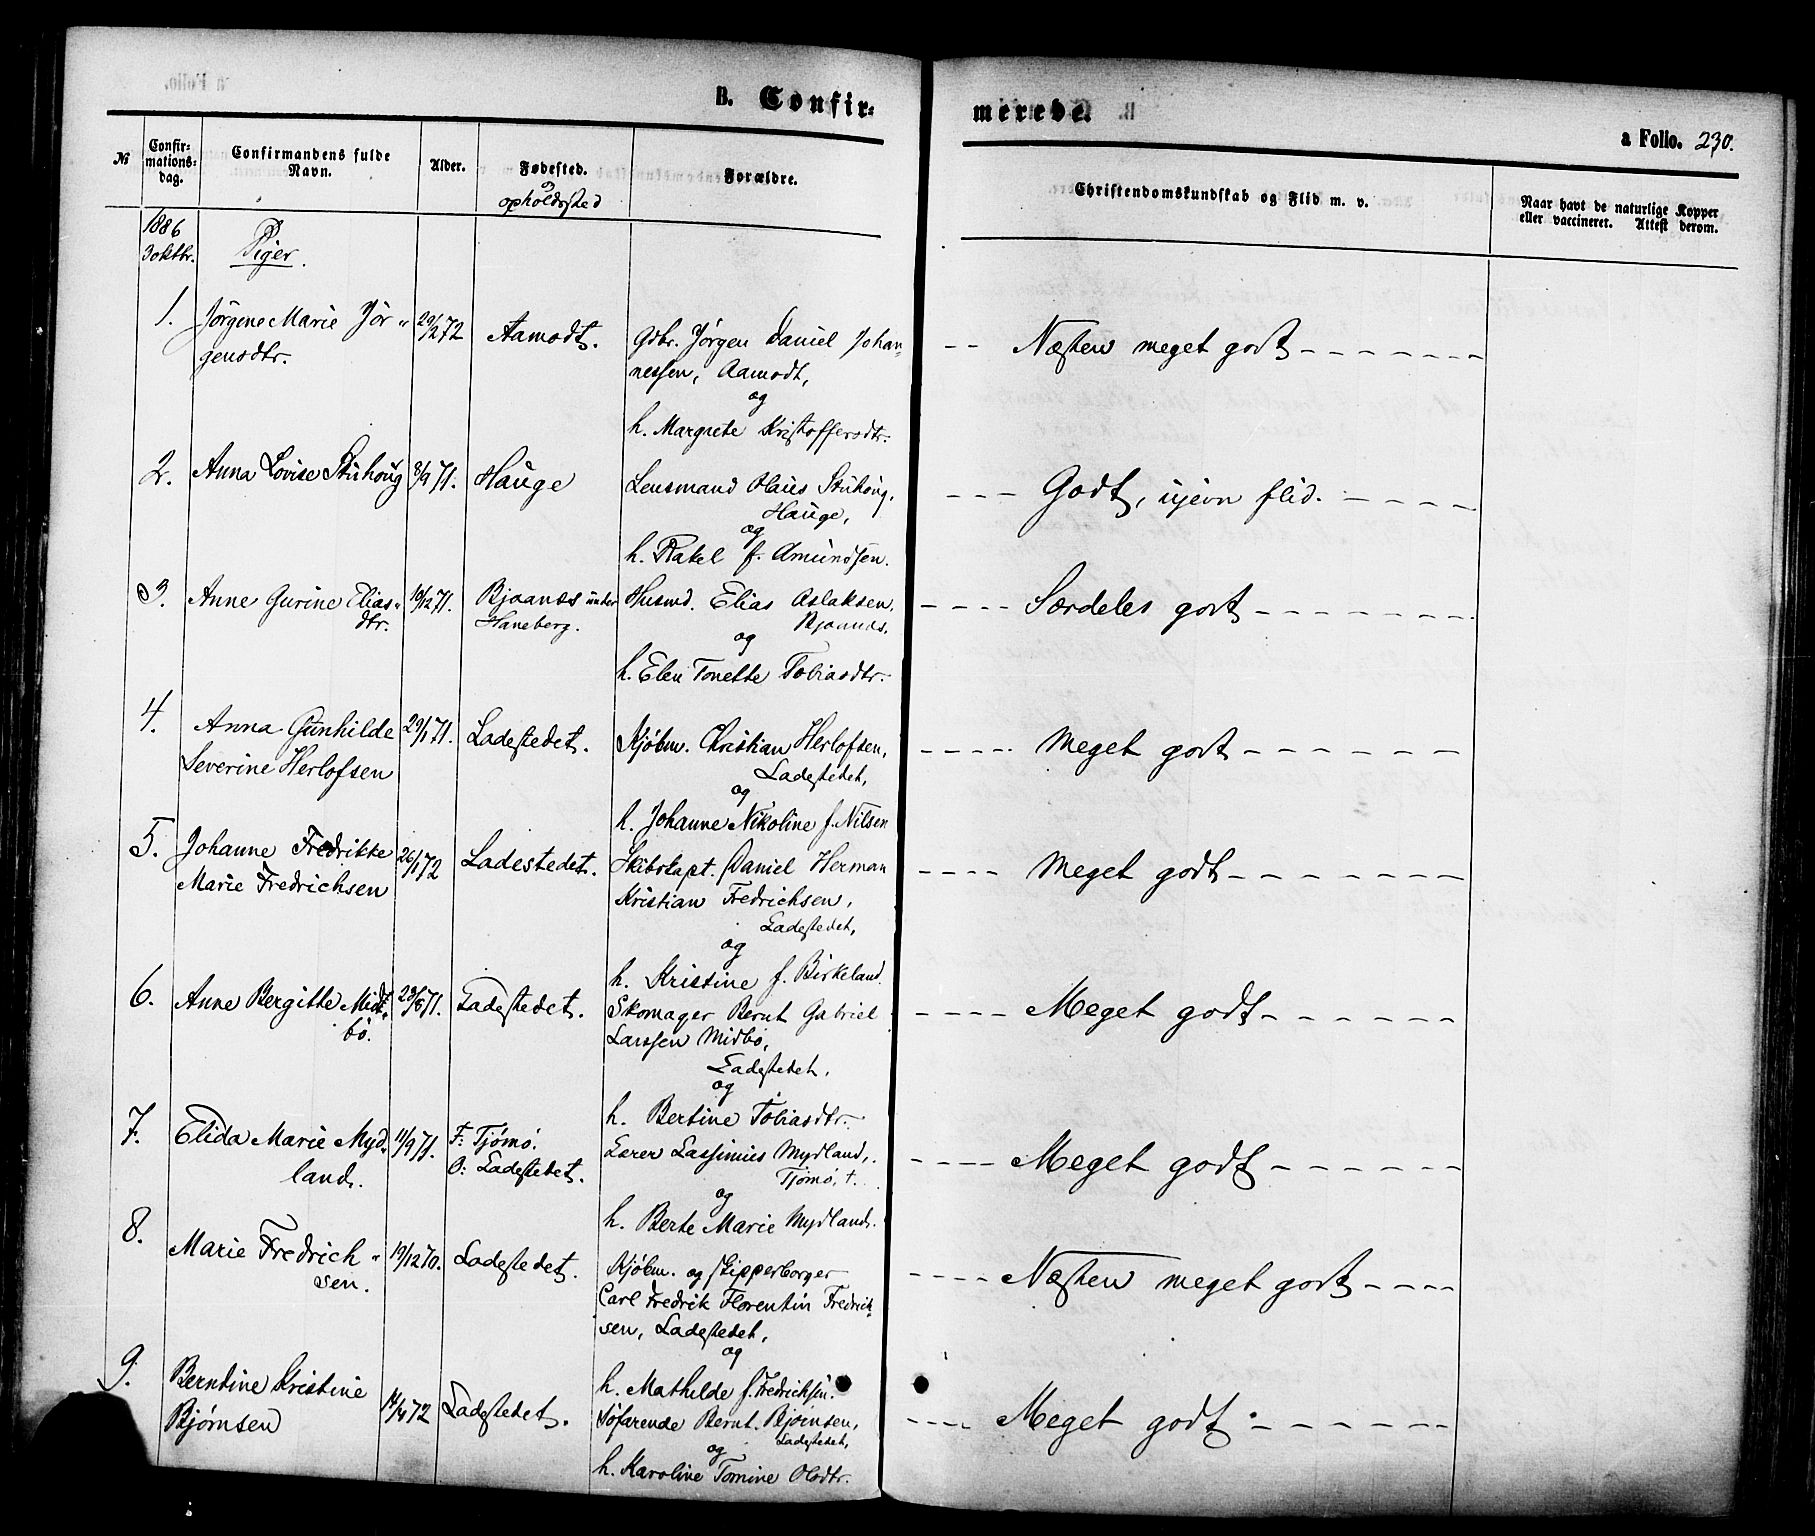 B. Confir-
merede.
a Folio. 230.
№
Confir-
mations-
dag.
Confirmandens fulde
Navn.
Alder.
Fødested.
og
opholdssted
Forældre.
Christendomskundskab og Flid m. v.
Naar havt de naturlige Kopper
eller vaccineret. Attest derom.
1886
3 oktbr.
Piger.
1. Jörgene Marie Jör- 29/2 72 Aamodt. Gbr. Jörgen Daniel Johan- -- Næsten meget godt -------
gensdtr. nessen, Aamodt,
og
h. Margrete Kristoffersdtr.
2. Anna Lovise Stuhoug 8/9 71. Hauge Lensmand Olaus Stuhoug, --- Godt, ujevn flid. -----
Hauge,
og
h. Rakel f. Amundsen.
3. Anne Gurine Elias- 10/12 71. Bjaanes under Husmd. Elias Aslaksen, ---- Særdeles godt -------
dtr. Haneberg. Bjaanes,
og
h. Elen Tonette Tobiasdtr.
4. Anna Gunhilde 29/1 71. Ladestedet. Kjøbm. Christian Herlofsen, ---- Meget godt -------
Severine Herlofsen Ladestedet,
og
h. Johanne Nikoline f. Nilsen
5. Johanne Fredrikke 26/1 72 Ladestedet. Skibskapt. Daniel Herman ---- Meget godt -------
Marie Fredrichsen Kristian Fredrichsen,
Ladestedet,
og
h. Kristine f. Birkeland.
6. Anne Bergitte Midt- 23/8 71. Ladestedet. Skomager Bernt Gabriel ---- Meget godt ------
bö. Larssen Midbö,
Ladestedet,
og
h. Bertine Tobiasdtr.
7. Elida Marie Myd- 11/9 71. F: Tjömö. Lærer Lassimius Mydland, ---- Meget godt ------
land. O: Ladestedet. Tjömö, †.
og
h. Berte Marie Mydland.
8. Marie Fredrich- 19/12 70. Ladestedet. Kjøbm. og skipperborger ---- Næsten meget godt ----
sen. Carl Fredrik Florentin Fredrik-
sen, Ladestedet,
og
h. Mathilde f. Fredrichsen.
9. Berntine Kristine 14/4 72 Ladestedet. Söfarende Bernt Bjørnsen, ---- Meget godt ------
Bjørnsen Ladestedet,
og
h. Karoline Tomine Olsdtr.